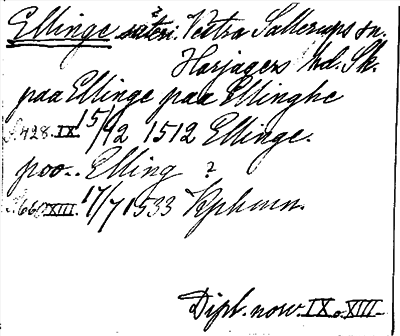 Ellinge säteri. Vestra Sallerups sn.
Harjagers hd. Sk.
paa Ellinge paa Ellinghe
S. 428. IX. 15/12 1512 Ellinge.
poo.. Elling ?
S. 660 XIII. 17/7 1533 Kphmn.
Dipl. norv. IX o. XIII